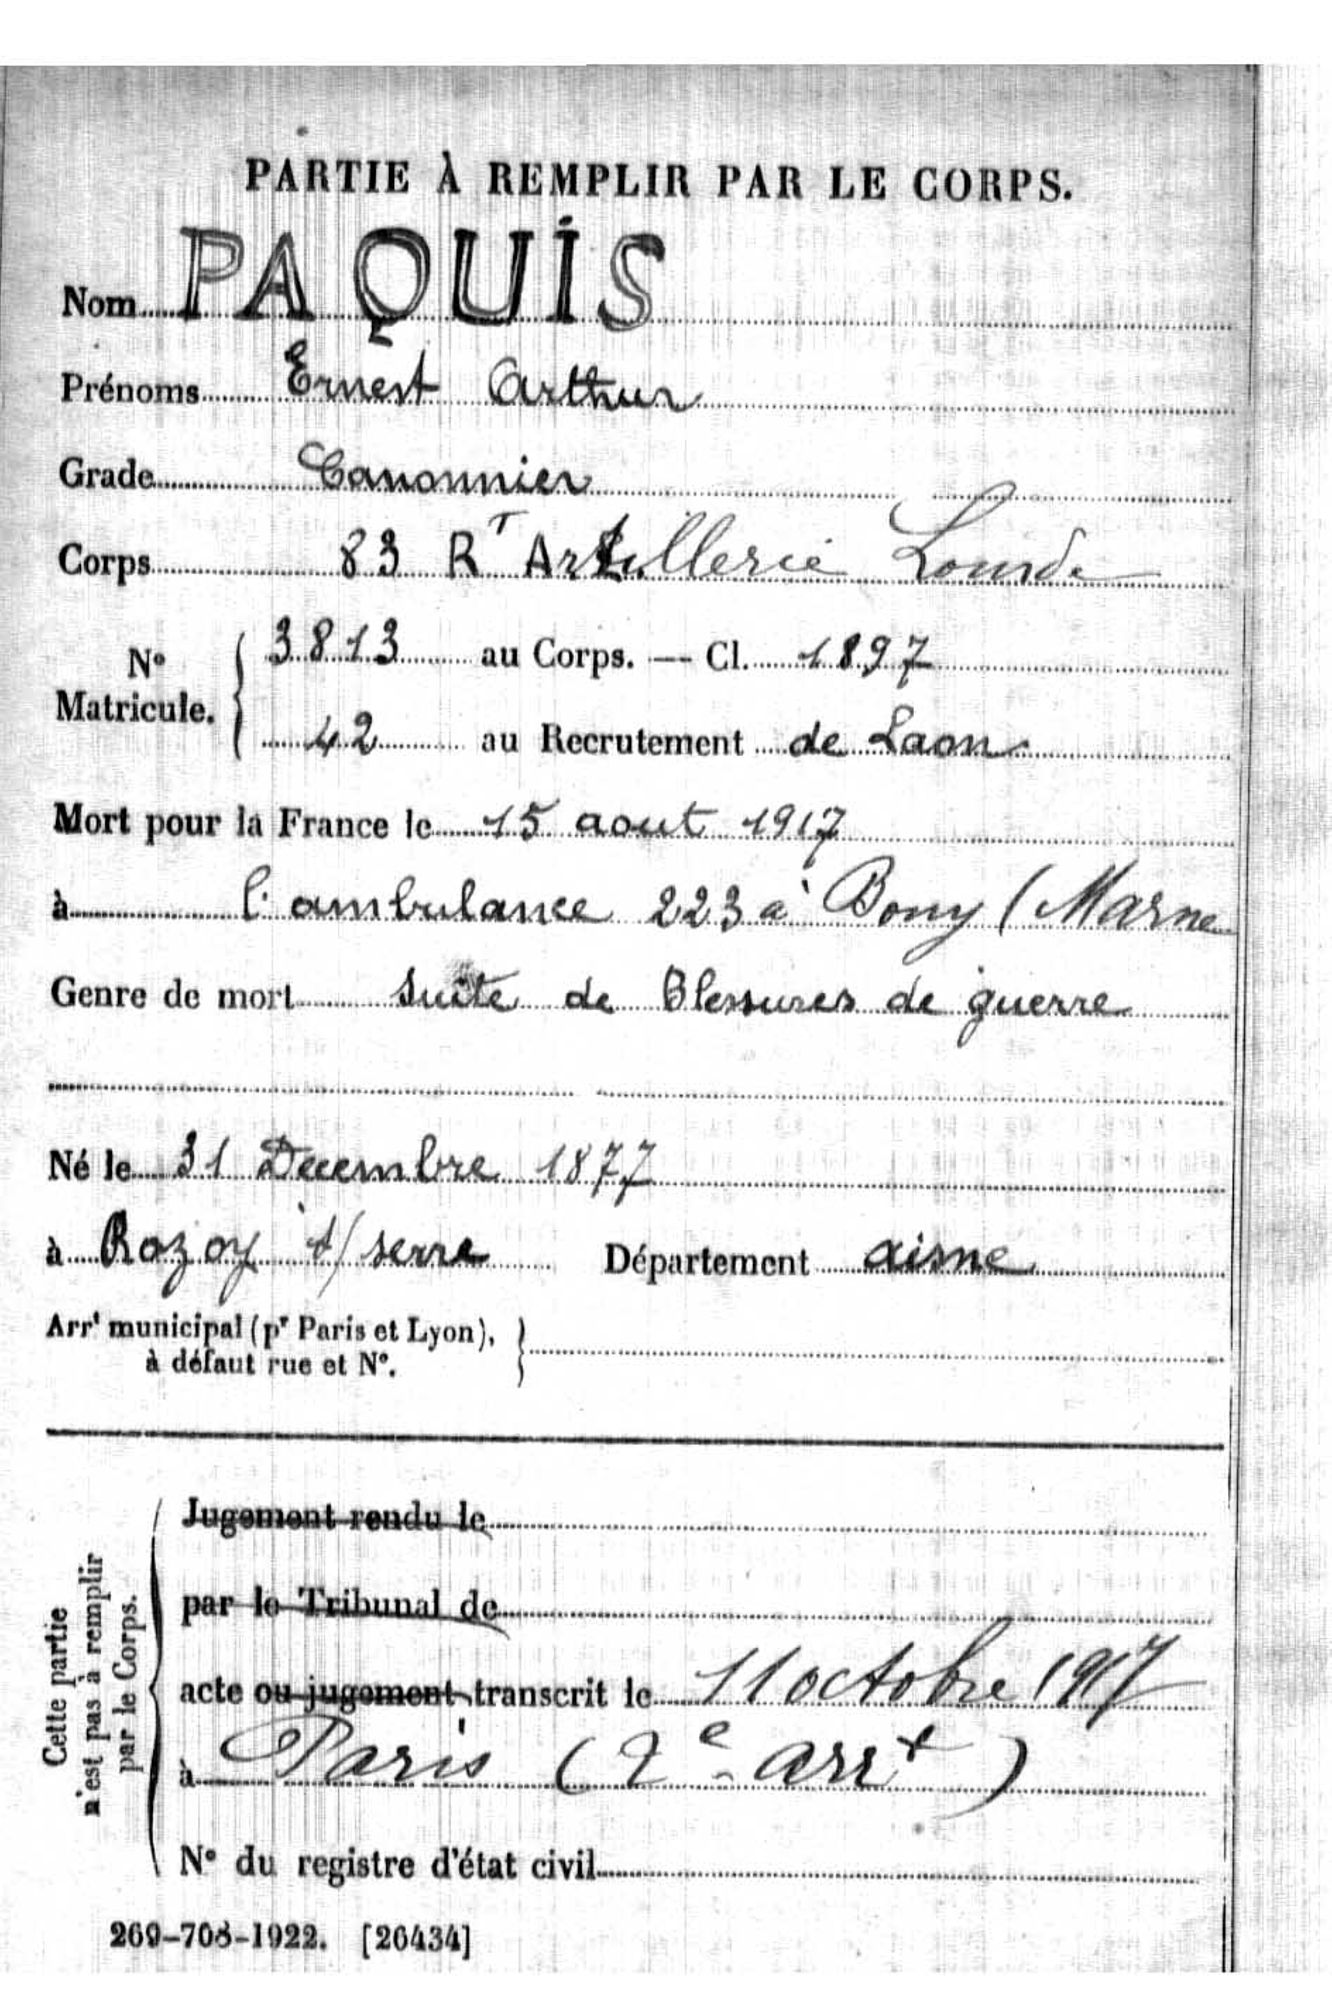 PARTIE À REMPLIR PAR LE CORPS.
Nom PAQUIS
Prénoms Ernest Arthur
Grade Canonnier
Corps 83 Rᵀ Artillerie Lourde
N° Matricule. 3813 au Corps. — Cl. 1897
42 au Recrutement de Laon
Mort pour la France le 15 aout 1917
à l'ambulance 223 à Bouy (Marne
Genre de mort suite de Blessures de guerre
Né le 31 Decembre 1877
à Rozoy s/ serre Département aisne
Arrᵗ municipal (pʳ Paris et Lyon),
à défaut rue et N°.
Cette partie
n'est pas à remplir
par le Corps.
Jugement rendu le
par le Tribunal de
acte ou jugement transcrit le 11 octobre 1917
à Paris (2e arrt)
N° du registre d'état civil
269-708-1922. [26434]